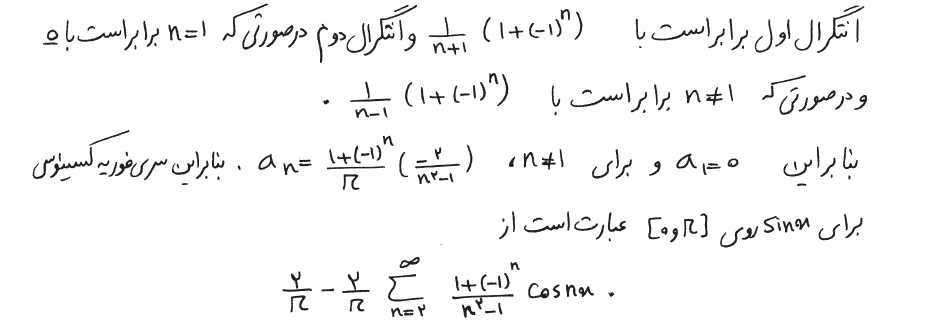 انتگرال اول برابر است با 1/(n+1) (1+(-1)^n) و انتگرال دوم درصورتی که n=1 برابر است با 0
و درصورتی که n≠1 برابر است با 1/(n-1) (1+(-1)^n) .
بنابراین a₁=0 و برای n≠1، aₙ = (1+(-1)^n)/π (-۲/(n^۲-1)) . بنابراین سری فوریه کسینوسی
برای sinx روی [0 و π] عبارت است از
۲/π - ۲/π ∑_{n=۲}^{∞} (1+(-1)^n)/(n^۲-1) cosnx .